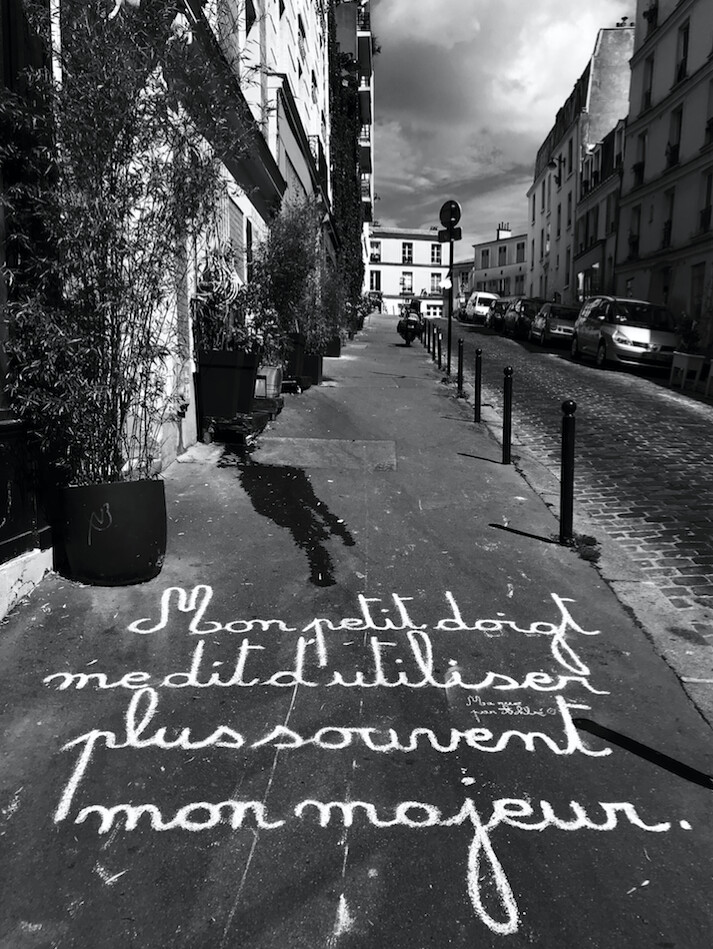 Mon petit doigt
me dit d'utiliser
plus souvent
mon majeur.